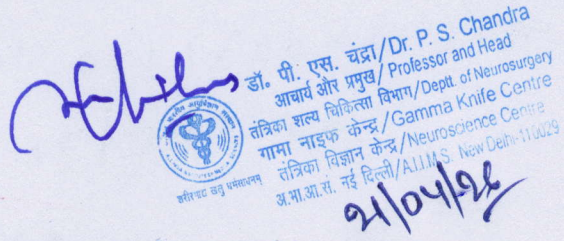 डॉ. पी. एस. चंद्रा/Dr. P. S. Chandra
आचार्य और प्रमुख/ Professor and Head
तंत्रिका शल्य चिकित्सा विभाग/Deptt. of Neurosurgery
गामा नाइफ केन्द्र/Gamma Knife Centre
तंत्रिका विज्ञान केन्द्र/Neuroscience Centre
अ.भा.आ.सं. नई दिल्ली/A.I.I.M.S. New Delhi-110029
शरीरमाद्यं खलु धर्मसाधनम्